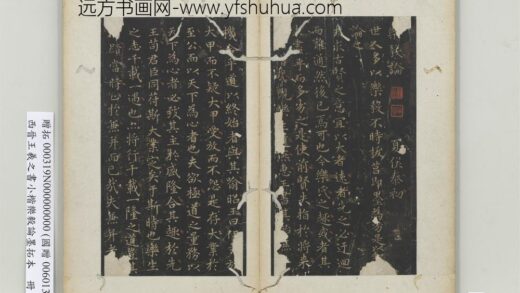 远方书画网-www.yfshuhua.com
樂毅論
夏侯泰初
世人多以樂毅不時拔莒即墨為劣
論之
求古賢之意宜以大者遠者先之必迂迴
而難通然後已焉可也今樂氏之趣或者其
未盡乎而多劣之是使前賢失指於將來
機合乎道以終始者與其喻昭王曰
大甲而不疑大甲受放而不怨是存大業於
至公而以天下為心者也夫欲極道之量務以
天下為心者必致其主於盛隆合其趣於先
王苟君臣同符斯大業定矣于斯時也樂生
之志千載一遇也亦將行千載一隆之道豈其
贈拓 000319N000000000 (國贈 006013
西晉王羲之書小楷樂毅論墨拓本 冊